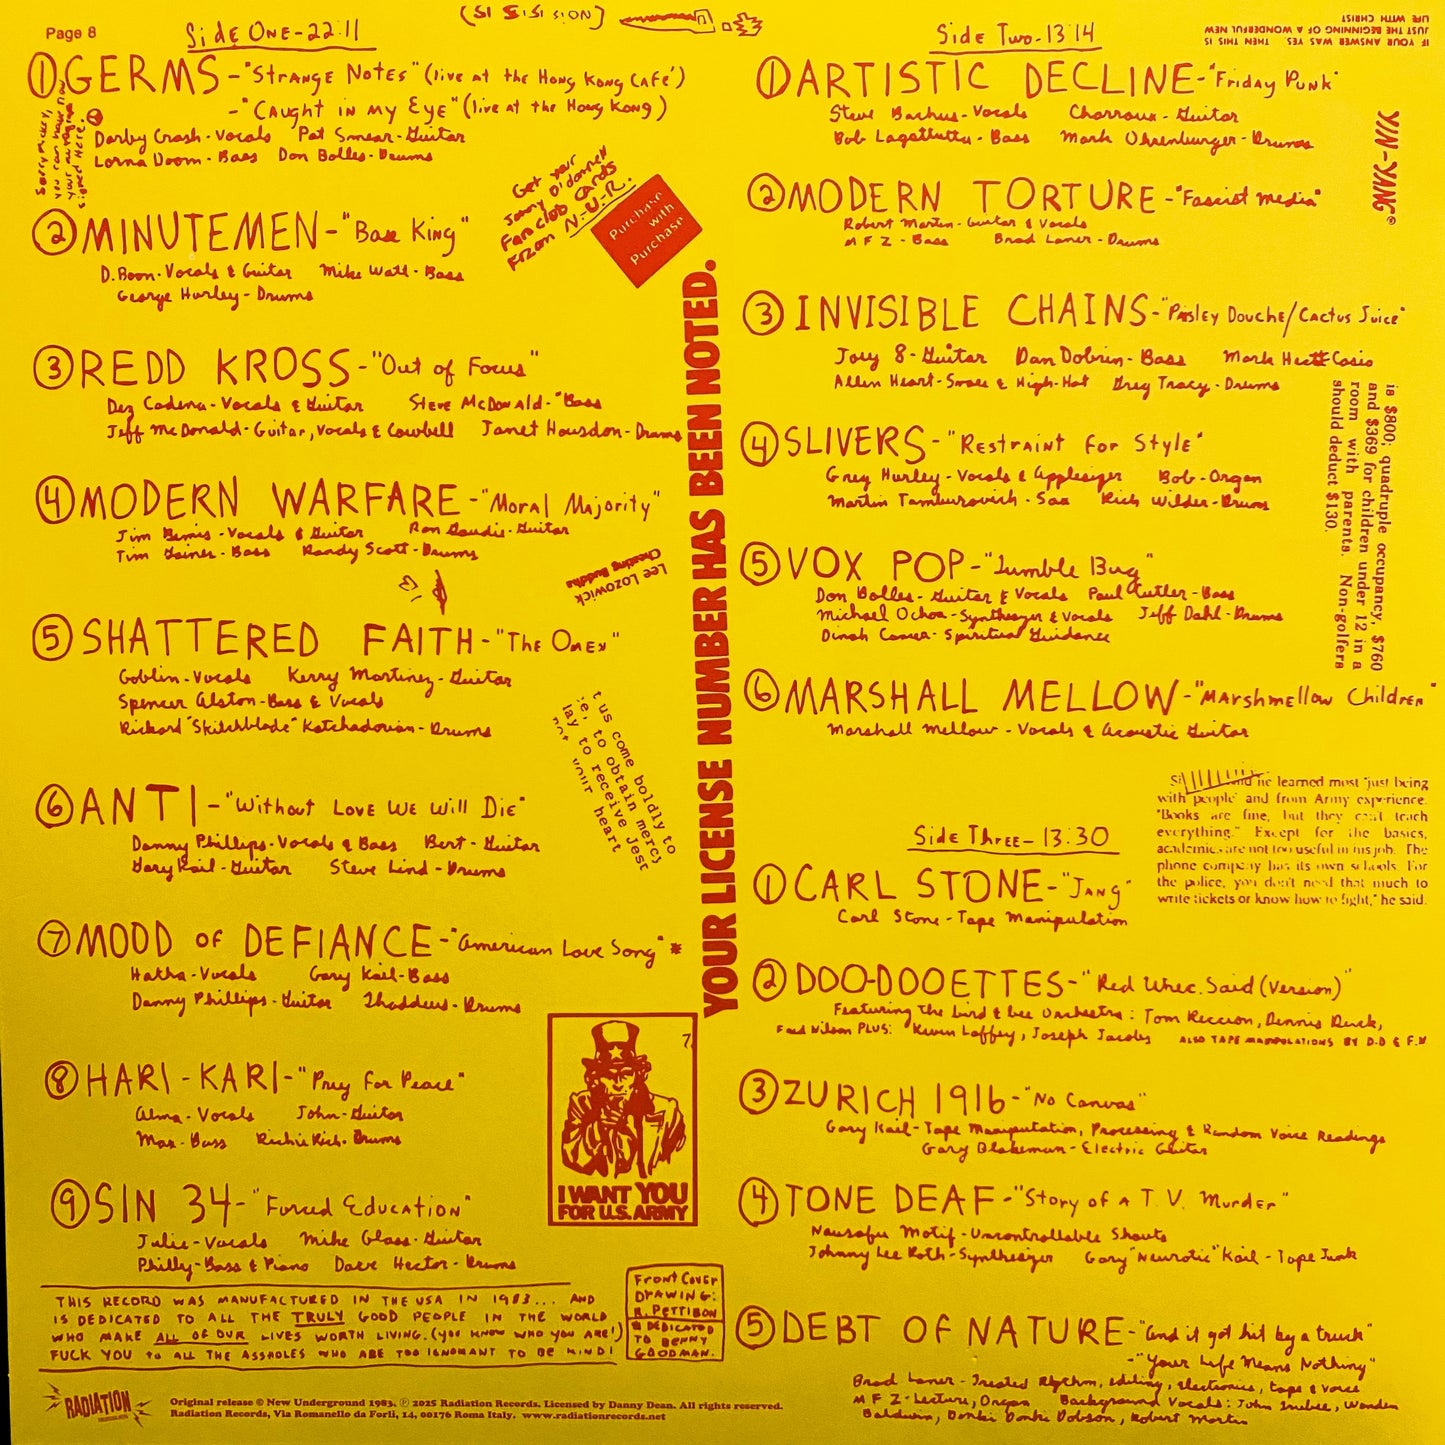 Page 8
Side One-22:11
(SI SISISION)
①GERMS-"Strange Notes"(live at the Hong Kong Cafe')
-"Caught in my Eye"(live at the Hong Kong)
Darby Crash-Vocals Pat Smear-Guitar
Lorna Doom-Bass Don Bolles-Drums
Sorry Mickey,
you can have now
your autograph
signed Here.
Get your
Jonny O'donnell
Fanclub Cards
From N.-U.-R.
Purchase
with
Purchase
②MINUTEMEN-"Base King"
D. Boon-Vocals & Guitar Mike Watt-Bass
George Hurley-Drums
③REDD KROSS-"Out of Focus"
Dez Cadena-Vocals & Guitar Steve McDonald-Bass
Jeff McDonald-Guitar, Vocals & Cowbell Janet Housdon-Drums
④MODERN WARFARE-"Moral Majority"
Jim Bemis-Vocals & Guitar Ron Goudie-Guitar
Tim Gainer-Bass Randy Scott-Drums
Lee Lozowick
Cheating Buddha
⑤SHATTERED FAITH-"The Omen"
Goblin-Vocals Kerry Martinez-Guitar
Spencer Alston-Bass & Vocals
Rickard "Skitchblade" Katchadorian-Drums
t us come boldly to
.e, to obtain mercy
lay to receive Jest
not your heart
⑥ANTI-"Without Love We Will Die"
Danny Phillips-Vocals & Bass Bert-Guitar
Gary Kail-Guitar Steve Lind-Drums
⑦MOOD OF DEFIANCE-"American Love Song"*
Hatha-Vocals Gary Kail-Bass
Danny Phillips-Guitar Thaddeus-Drums
⑧HARI-KARI-"Prey For Peace"
Alma-Vocals John-Guitar
Max-Bass Richie Rich-Drums
⑨SIN 34-"Forced Education"
Julie-Vocals Mike Glass-Guitar
Philly-Bass & Piano Dave Hector-Drums
7.
I WANT YOU
FOR U.S. ARMY
THIS RECORD WAS MANUFACTURED IN THE USA IN 1983... AND
IS DEDICATED TO ALL THE TRULY GOOD PEOPLE IN THE WORLD
WHO MAKE ALL OF OUR LIVES WORTH LIVING. (YOU KNOW WHO YOU ARE!)
FUCK YOU TO ALL THE ASSHOLES WHO ARE TOO IGNORANT TO BE KIND!
FRONT COVER
DRAWING:
R. PETTIBON
& DEDICATED
TO BENNY
GOODMAN.
RADIATION
Original release © New Underground 1983. ℗ 2025 Radiation Records. Licensed by Danny Dean. All rights reserved.
Radiation Records, Via Romanello da Forlì, 14, 00176 Roma Italy. www.radiationrecords.net
YOUR LICENSE NUMBER HAS BEEN NOTED.
Side Two-13:14
IF YOUR ANSWER WAS YES THEN THIS IS
JUST THE BEGINNING OF A WONDERFUL NEW
LIFE WITH CHRIST
YIN-YANG®
①ARTISTIC DECLINE-"Friday Punk"
Steve Bachus-Vocals Charroux-Guitar
Bob Lagattutta-Bass Mark Ohrenburger-Drums
②MODERN TORTURE-"Fascist Media"
Robert Martin-Guitar & Vocals
M F Z-Bass Brad Laner-Drums
③INVISIBLE CHAINS-"Paisley Douche/Cactus Juice"
Joey 8-Guitar Dan Dobrin-Bass Mark Hect-Casio
Allen Heart-Snare & High-Hat Greg Tracy-Drums
is $800; quadruple occupancy, $760
and $369 for children under 12 in a
room with parents. Non-golfers
should deduct $130.
④SLIVERS-"Restraint for Style"
Greg Hurley-Vocals & Applesizer Bob-Organ
Martin Tamburovich-Sax Rich Wilder-Drums
⑤VOX POP-"Jumble Bug"
Don Bolles-Guitar & Vocals Paul Cutler-Bass
Michael Ochoa-Synthesizer & Vocals Jeff Dahl-Drums
Dinah Cancer-Spiritual Guidance
⑥MARSHALL MELLOW-"Marshmellow Children"
Marshall Mellow-Vocals & Acoustic Guitar
he learned most "just being
with people" and from Army experience.
"Books are fine, but they can't teach
everything." Except for the basics,
academics are not too useful in his job. The
phone company has its own schools. For
the police, you don't need that much to
write tickets or know how to fight," he said.
Side Three-13:30
①CARL STONE-"Jang"
Carl Stone-Tape Manipulation
②DOO-DOOETTES-"Red Whec. Said (Version)"
Featuring the bird & bee Orchestra: Tom Reccion, Dennis Duck,
Fred Nilsen PLUS: Kevin Laffey, Joseph Jacobs ALSO TAPE MANIPULATIONS BY D.D & F.N
③ZURICH 1916-"No Canvas"
Gary Kail-Tape Manipulation, Processing & Random Voice Readings
Gary Blakeman-Electric Guitar
④TONE DEAF-"Story of a T.V. Murder"
Nausafu Motif-Uncontrollable Shouts
Johnny Lee Roth-Synthesizer Gary "Neurotic" Kail-Tape Junk
⑤DEBT OF NATURE-"and it got hit by a truck"
-"Your Life Means Nothing"
Brad Laner-Treated Rhythm, editing, electronics, tape & voice
M F Z-Lecture, Organ Background Vocals: John Trubee, Wanden
Baldwin, Donkie Donkie Dobson, Robert Martin